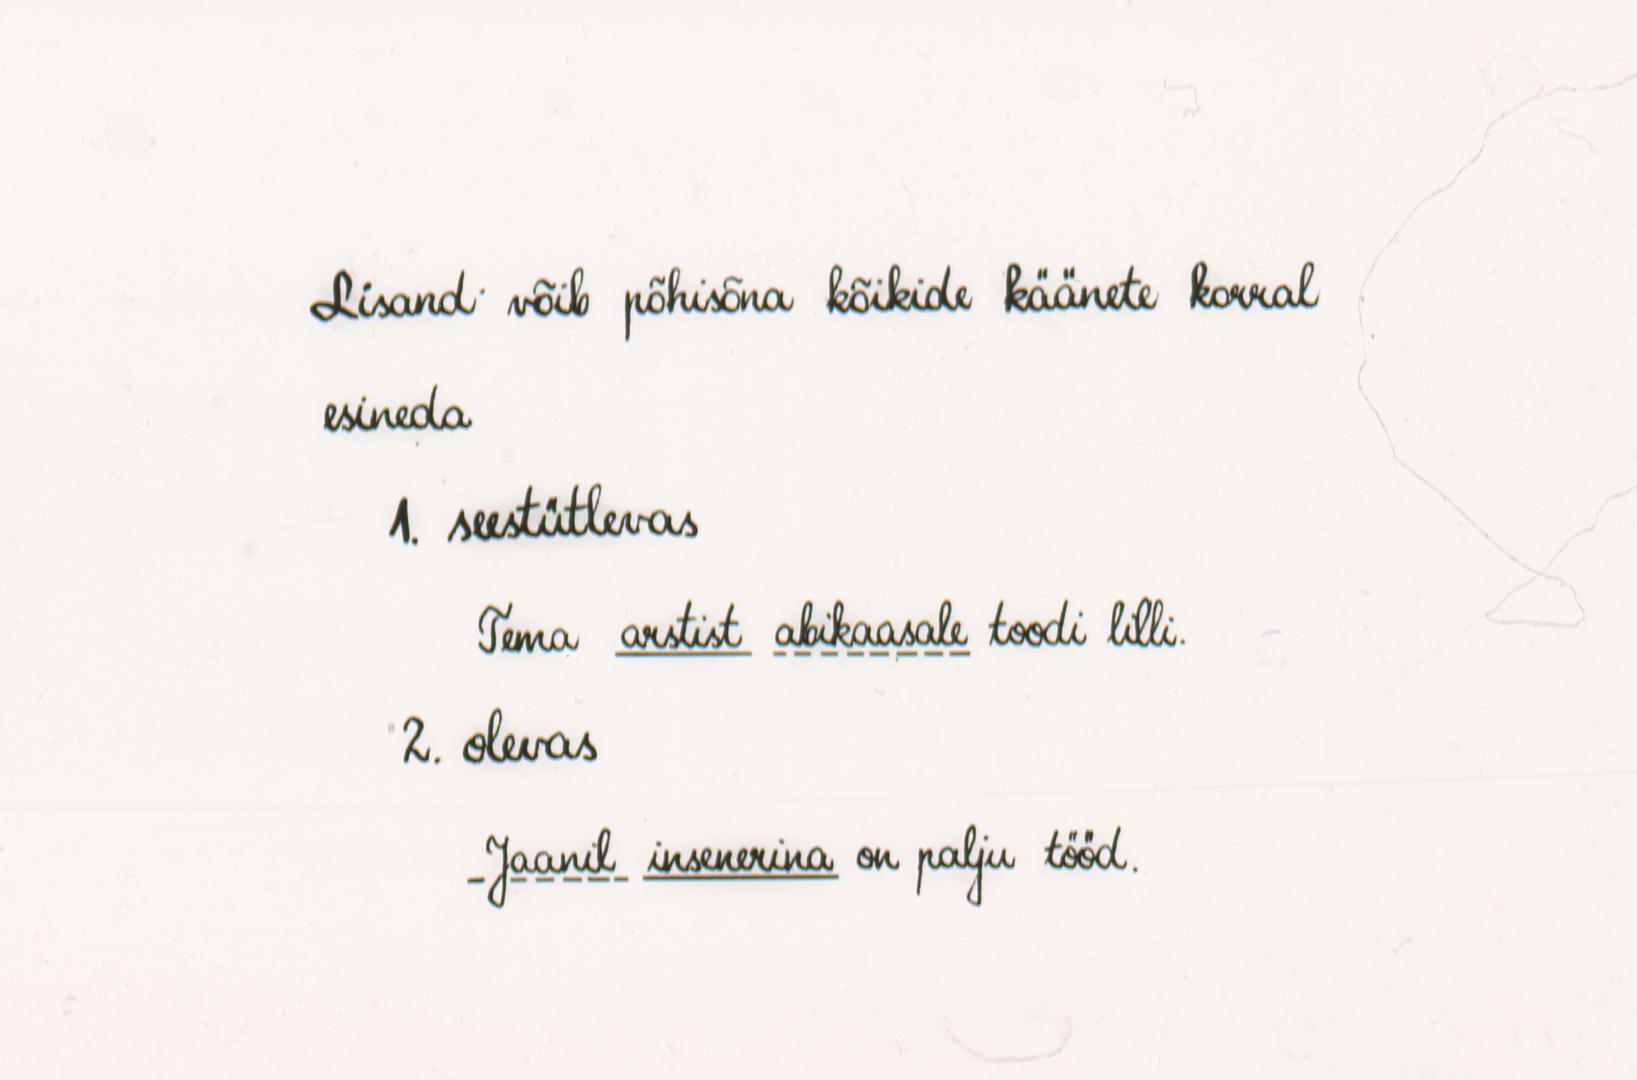 Lisand võib põhisõna kõikide käänete korral
esineda
1. seestütlevas
Tema arstist abikaasale toodi lilli.
2. olevas
Jaanil insenerina on palju tööd.